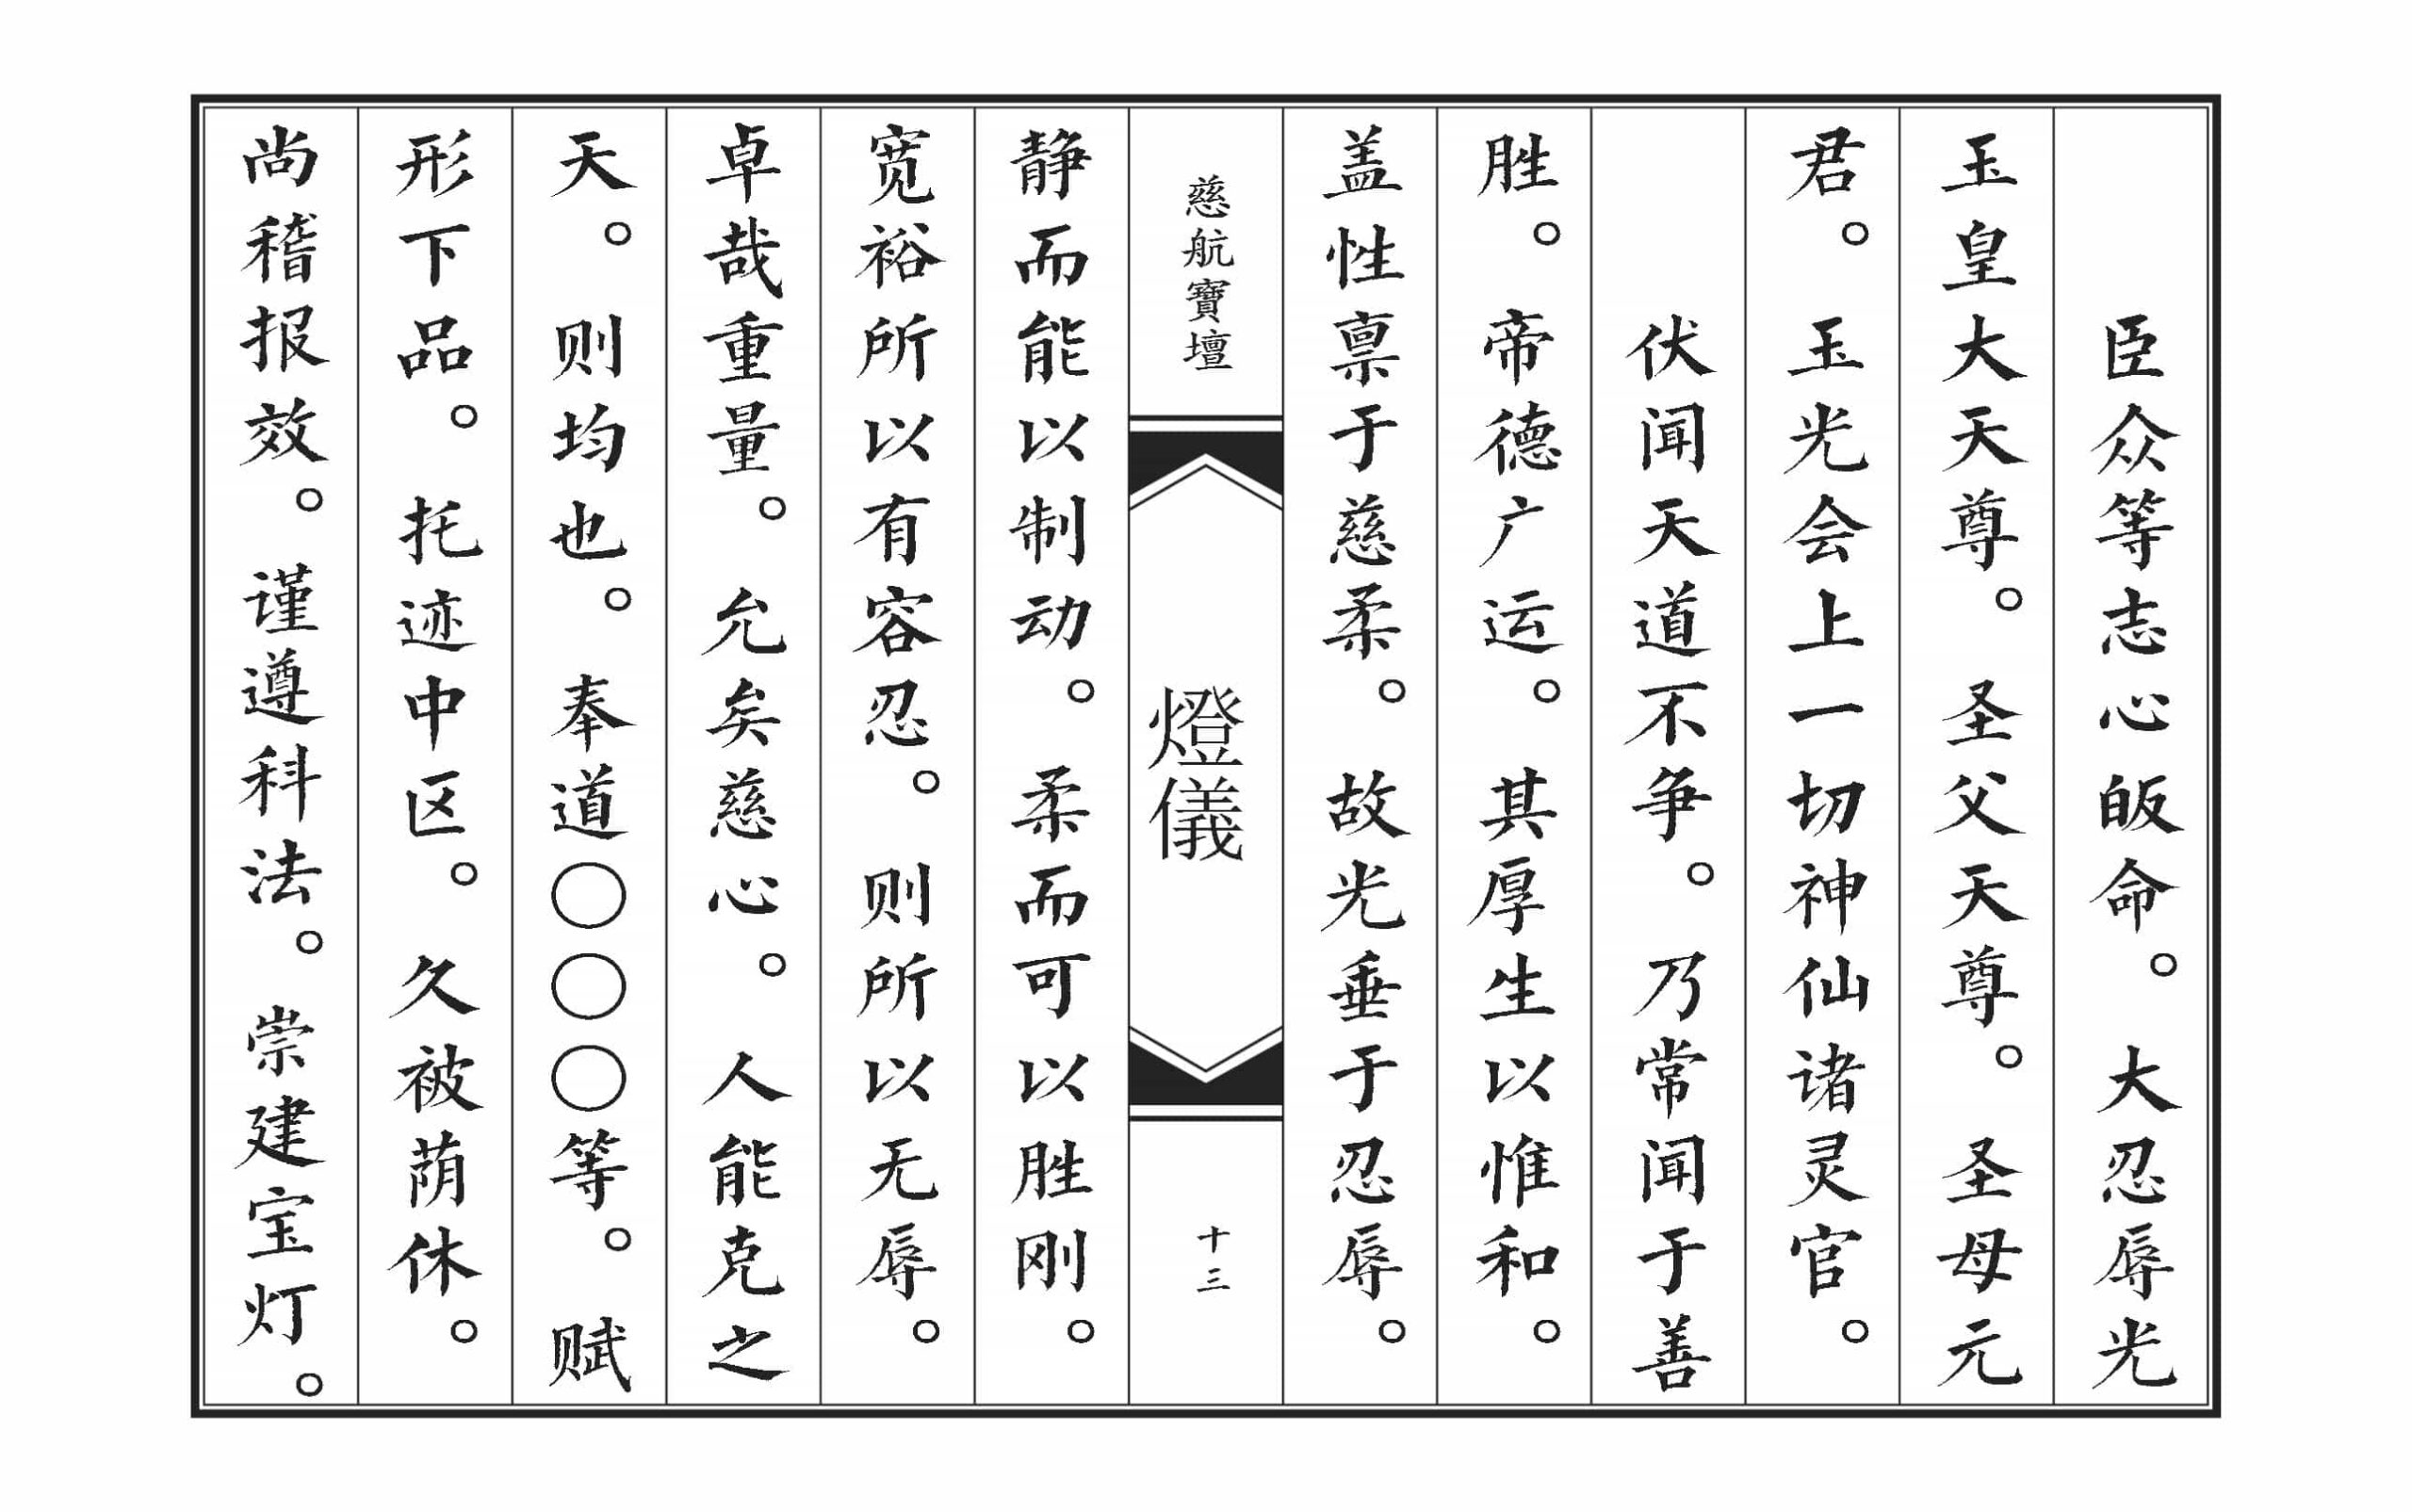 臣众等志心皈命。大忍辱光
玉皇大天尊。圣父天尊。圣母元
君。玉光会上一切神仙诸灵官。
伏闻天道不争。乃常闻于善
胜。帝德广运。其厚生以惟和。
盖性禀于慈柔。故光垂于忍辱。
慈航寶壇
燈儀
十三
静而能以制动。柔而可以胜刚。
宽裕所以有容忍。则所以无辱。
卓哉重量。允矣慈心。人能克之
天。则均也。奉道〇〇〇等。赋
形下品。托迹中区。久被荫休。
尚稽报效。谨遵科法。崇建宝灯。